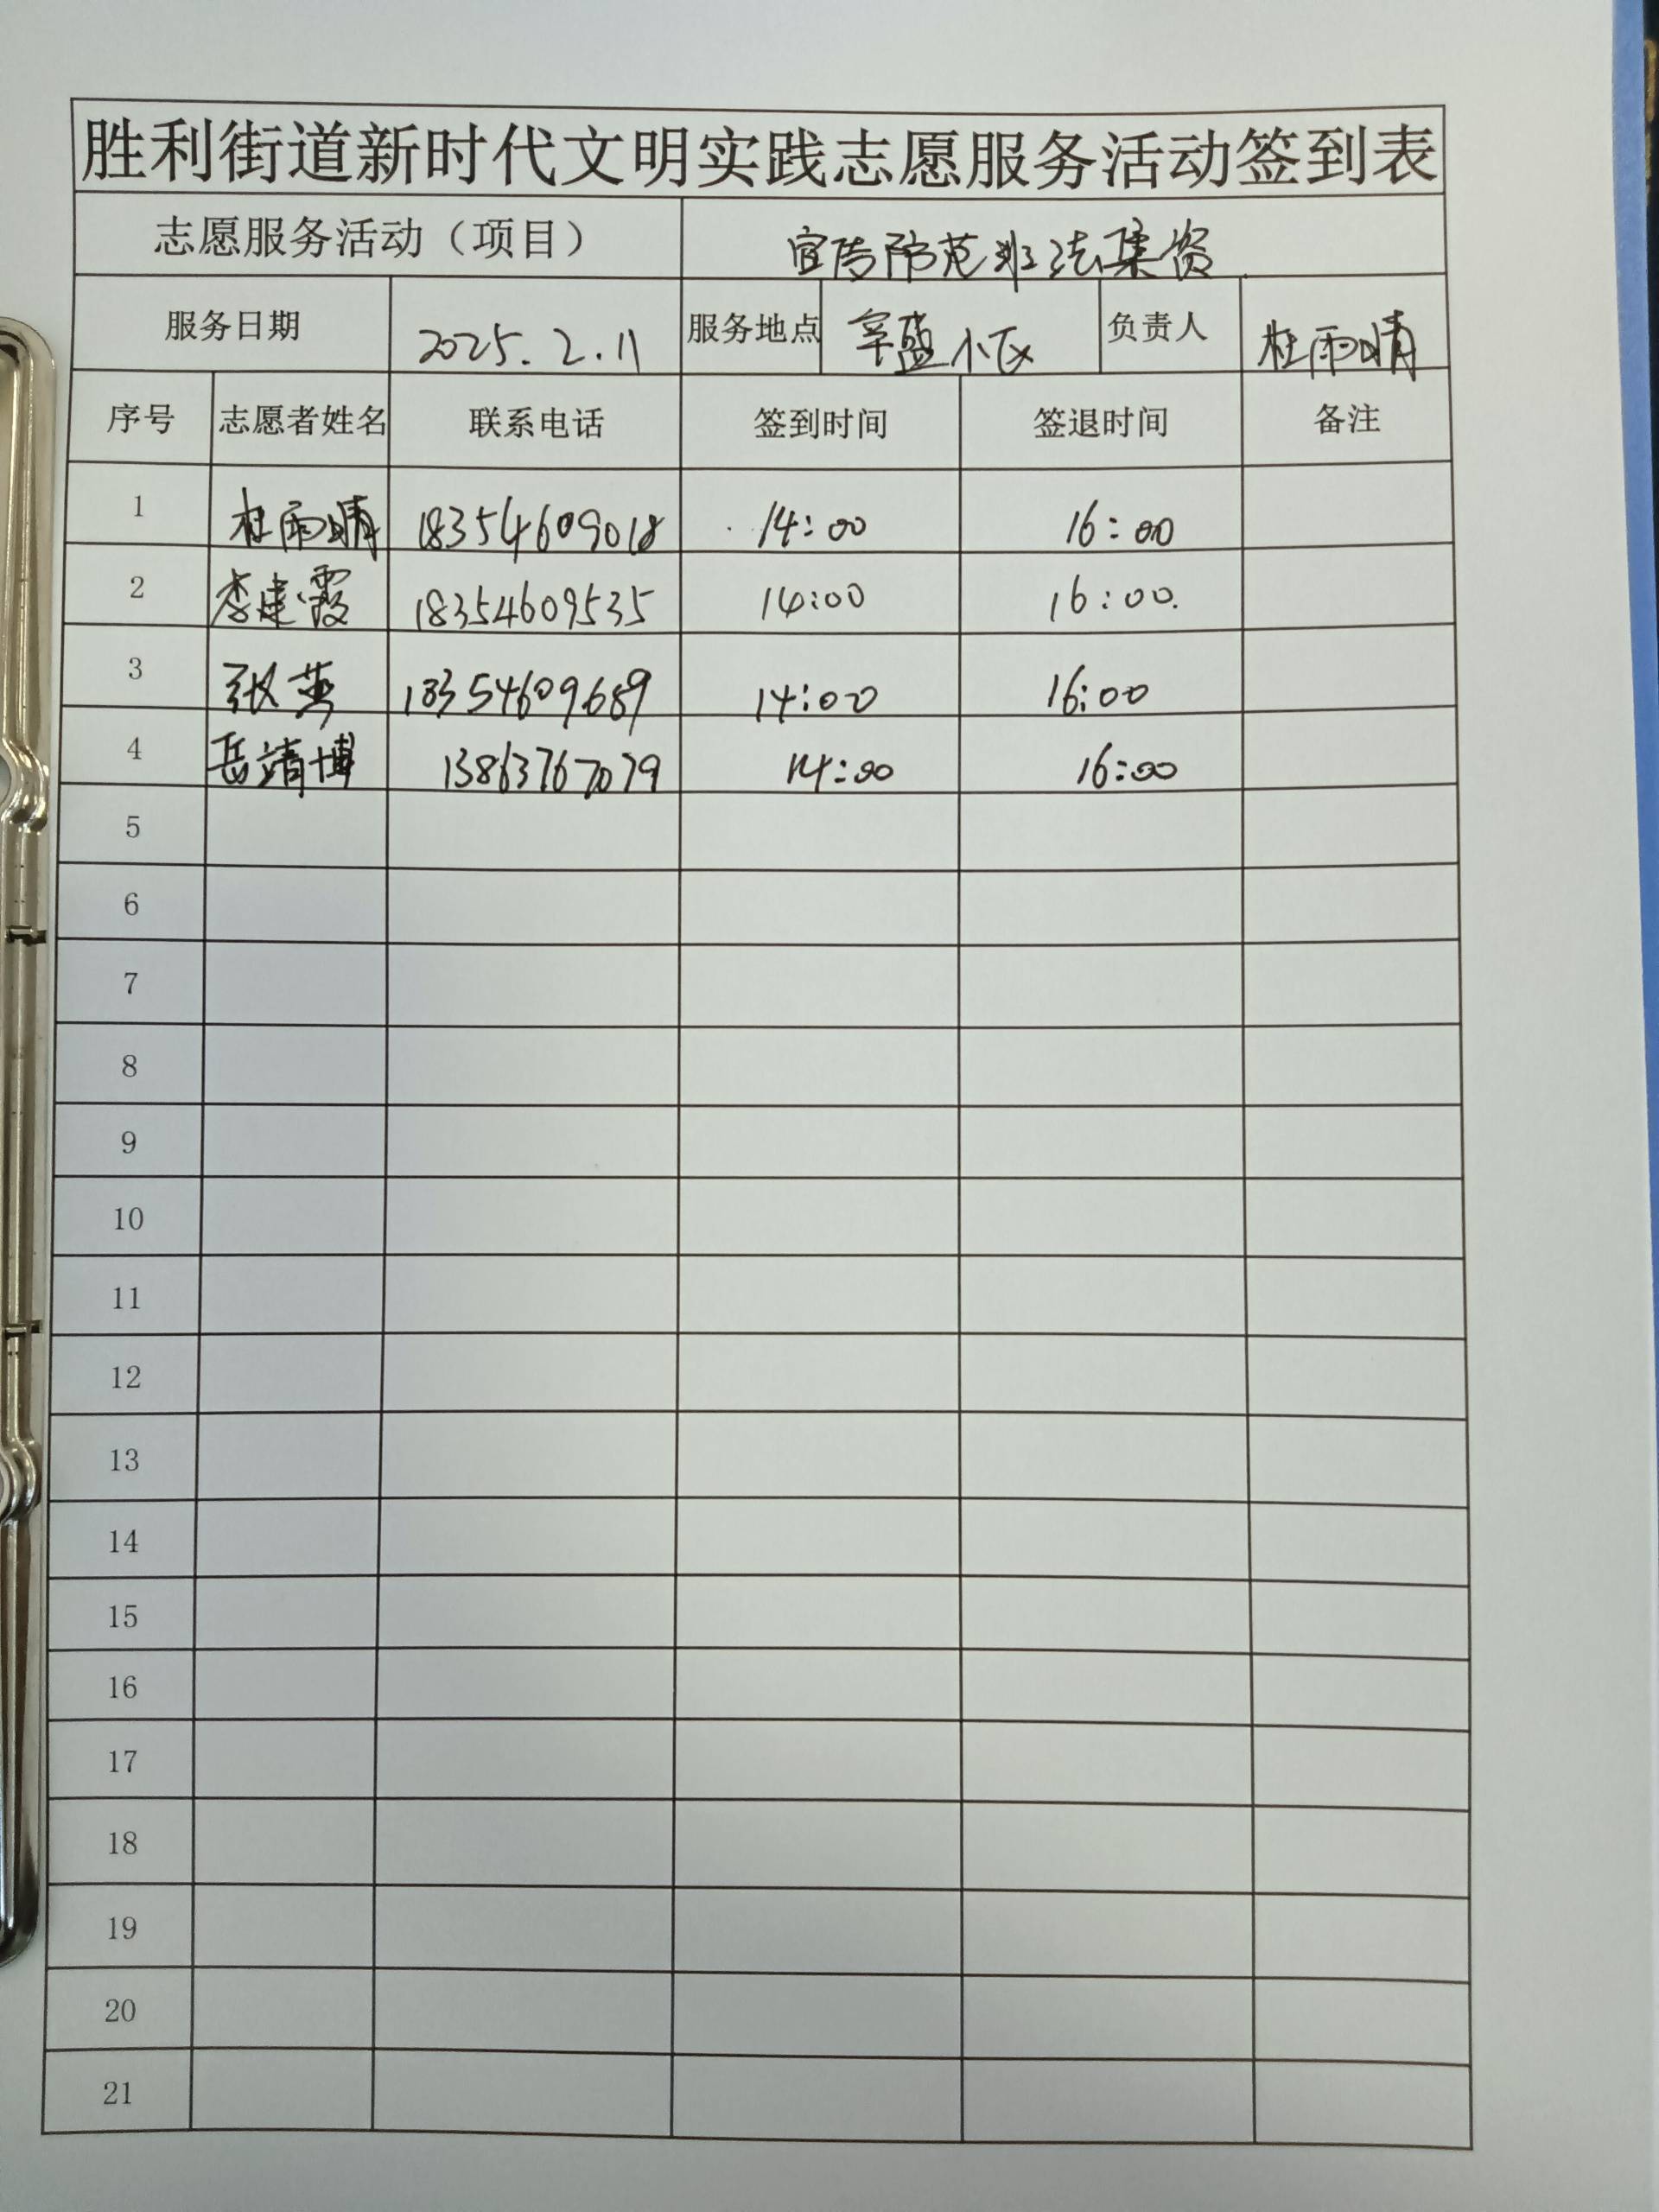 胜利街道新时代文明实践志愿服务活动签到表
志愿服务活动（项目） 宣传防范非法集资
服务日期 2025.2.11 服务地点 辛盛小区 负责人 杜雨晴
序号 志愿者姓名 联系电话 签到时间 签退时间 备注
1 杜雨晴 18354609018 14:00 16:00
2 李建霞 18354609535 14:00 16:00.
3 张英 18354609689 14:00 16:00
4 岳靖博 13863767079 14:00 16:00
5
6
7
8
9
10
11
12
13
14
15
16
17
18
19
20
21